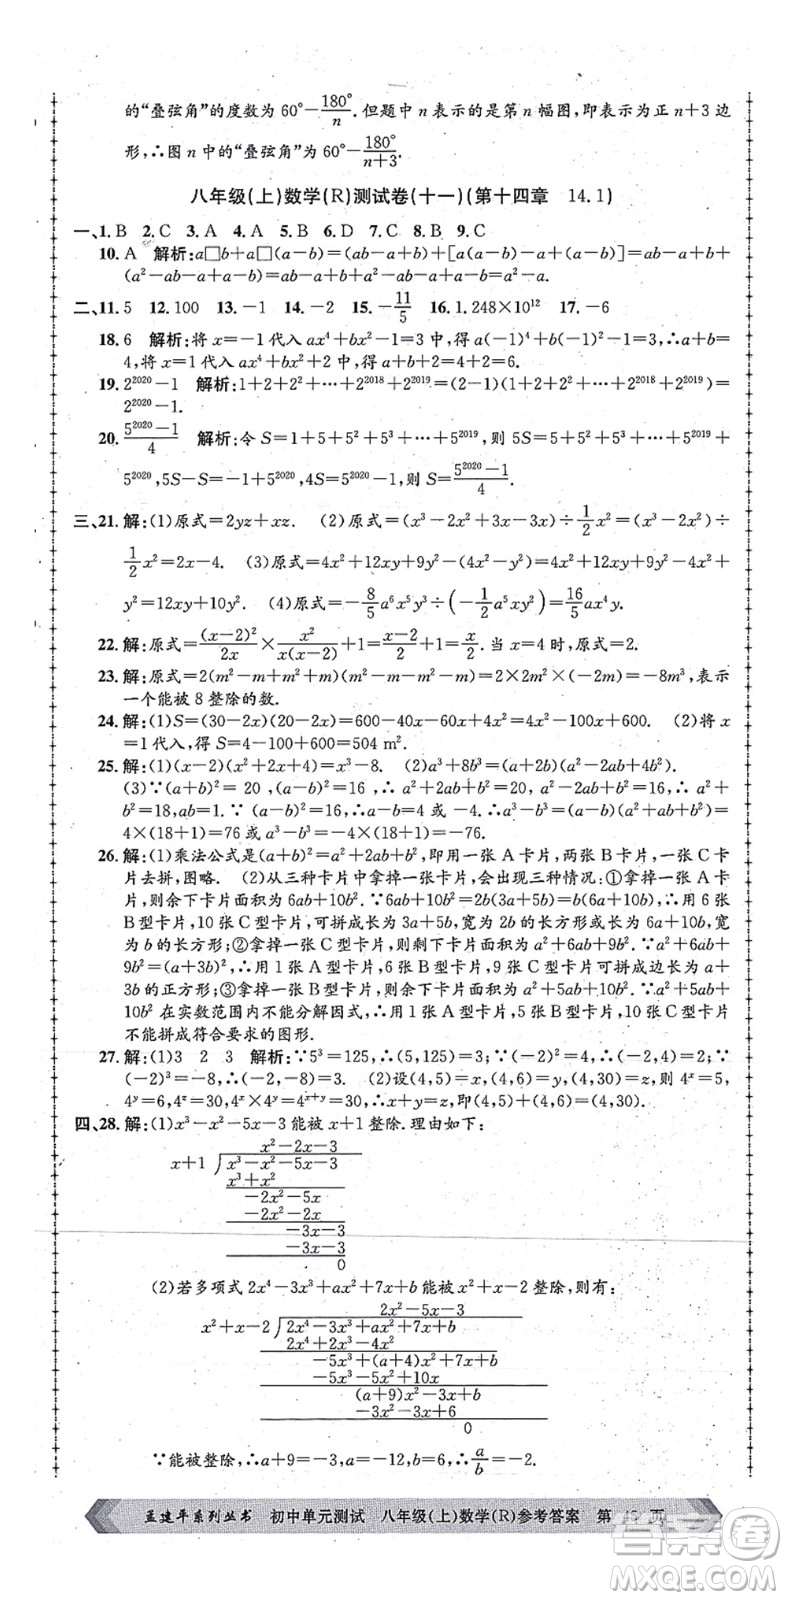 的“叠弦角”的度数为60°−180°/n. 但题中 n 表示的是第 n 幅图,即表示为正 n+3 边
形,∴图 n 中的“叠弦角”为 60°−180°/(n+3).
八年级(上)数学(R)测试卷(十一)(第十四章 14.1)
一、1. B 2. C 3. A 4. A 5. B 6. D 7. C 8. B 9. C
10. A 解析:a□b+a□(a−b)=(ab−a+b)+[a(a−b)−a+(a−b)]=ab−a+b+
(a²−ab−a+a−b)=ab−a+b+a²−ab−a+a−b=a²−a.
二、11. 5 12. 100 13. −1 14. −2 15. −11/5 16. 1.248×10¹² 17. −6
18. 6 解析:将 x=−1 代入 ax⁴+bx²−1=3 中,得 a(−1)⁴+b(−1)²−1=3,∴a+b=
4,将 x=1 代入 ax⁴+bx²+2 中,得 a+b+2=4+2=6.
19. 2²⁰²⁰−1 解析:1+2+2²+…+2²⁰¹⁸+2²⁰¹⁹=(2−1)(1+2+2²+…+2²⁰¹⁸+2²⁰¹⁹)=
2²⁰²⁰−1.
20. (5²⁰²⁰−1)/4 解析:令 S=1+5+5²+5³+…+5²⁰¹⁹,则 5S=5+5²+5³+…+5²⁰¹⁹+
5²⁰²⁰,5S−S=−1+5²⁰²⁰,4S=5²⁰²⁰−1,则 S=(5²⁰²⁰−1)/4.
三、21. 解:(1)原式=2yz+xz. (2)原式=(x³−2x²+3x−3x)÷1/2x²=(x³−2x²)÷
1/2x²=2x−4. (3)原式=4x²+12xy+9y²−(4x²−y²)=4x²+12xy+9y²−4x²+
y²=12xy+10y². (4)原式=−8/5a⁶x⁵y³÷(−1/2a⁵xy²)=16/5ax⁴y.
22. 解:原式=(x−2)²/2x×x²/x(x−2)+1=(x−2)/2+1=x/2. 当 x=4 时,原式=2.
23. 解:原式=2(m²−m+m²+m)(m²−m−m²−m)=2×2m²×(−2m)=−8m³,表示
一个能被 8 整除的数.
24. 解:(1)S=(30−2x)(20−2x)=600−40x−60x+4x²=4x²−100x+600. (2)将 x
=1代入,得 S=4−100+600=504 m².
25. 解:(1)(x−2)(x²+2x+4)=x³−8. (2)a³+8b³=(a+2b)(a²−2ab+4b²).
(3)∵(a+b)²=20,(a−b)²=16,∴a²+2ab+b²=20,a²−2ab+b²=16,∴a²+
b²=18,ab=1.∵(a−b)²=16,∴a−b=4 或 −4.∵a³−b³=(a−b)(a²+ab+b²)=
4×(18+1)=76 或 a³−b³=−4×(18+1)=−76.
26. 解:(1)乘法公式是(a+b)²=a²+2ab+b²,用一张 A 卡片,两张 B 卡片,一张 C 卡
片去拼,图略. (2)从三种卡片中拿掉一张卡片,会出现三种情况:①拿掉一张 A 卡
片,则剩下卡片面积为 6ab+10b².∵6ab+10b²=2b(3a+5b)=b(6a+10b),∴用 6
张 B 型卡片,10 张 C 型卡片,可拼成长为 3a+5b,宽为 2b 的长方形或长为 6a+10b,宽
为 b 的长方形;②拿掉一张 C 型卡片,则剩下卡片面积为 a²+6ab+9b².∵a²+6ab+9b²
=(a+3b)²,∴用 1 张 A 型卡片,6 张 B 型卡片,9 张 C 型卡片可拼成长为 a+
3b的正方形;③拿掉一张 B 型卡片,则剩下卡片面积为 a²+5ab+10b².∵a²+5ab+
10b² 在实数范围内不能分解因式,∴用 1 张 A 型卡片,5 张 B 型卡片,10 张 C 型卡片
不能拼成符合要求的图形.
27. 解:(1)3 2 3 解析:∵5³=125,∴(5,125)=3;∵(−2)²=4,∴(−2,4)=2;
∵(−2)³=−8,∴(−2,−8)=3. (2)设(4,5)=x,(4,6)=y,(4,30)=z,则 4ˣ=5,
4ʸ=6,4ᶻ=30,4ˣ×4ʸ=4ˣ⁺ʸ=30,∴x+y=z,即(4,5)+(4,6)=(4,30).
四、28. 解:(1)x³−x²−5x−3 能被 x+1 整除. 理由如下:
x²−2x−3
x+1 √x³−x²−5x−3
x³+x²
−2x²−5x
−2x²−2x
−3x−3
−3x−3
0
(2)若多项式 2x⁴−3x³+ax²+7x+b 能被 x²+x−2 整除,则有:
2x²−5x−3
x²+x−2 √2x⁴−3x³+ax²+7x+b
2x⁴+2x³−4x²
−5x³+(a+4)x²+7x+b
−5x³−5x²+10x
(a+9)x²−3x+b
−3x²−3x+6
0
∵能被整除,∴a+9=−3,a=−12,b=6,∴a/b=−2.
孟建平系列丛书 初中单元测试 八年级(上)数学(R)参考答案 第 45 页